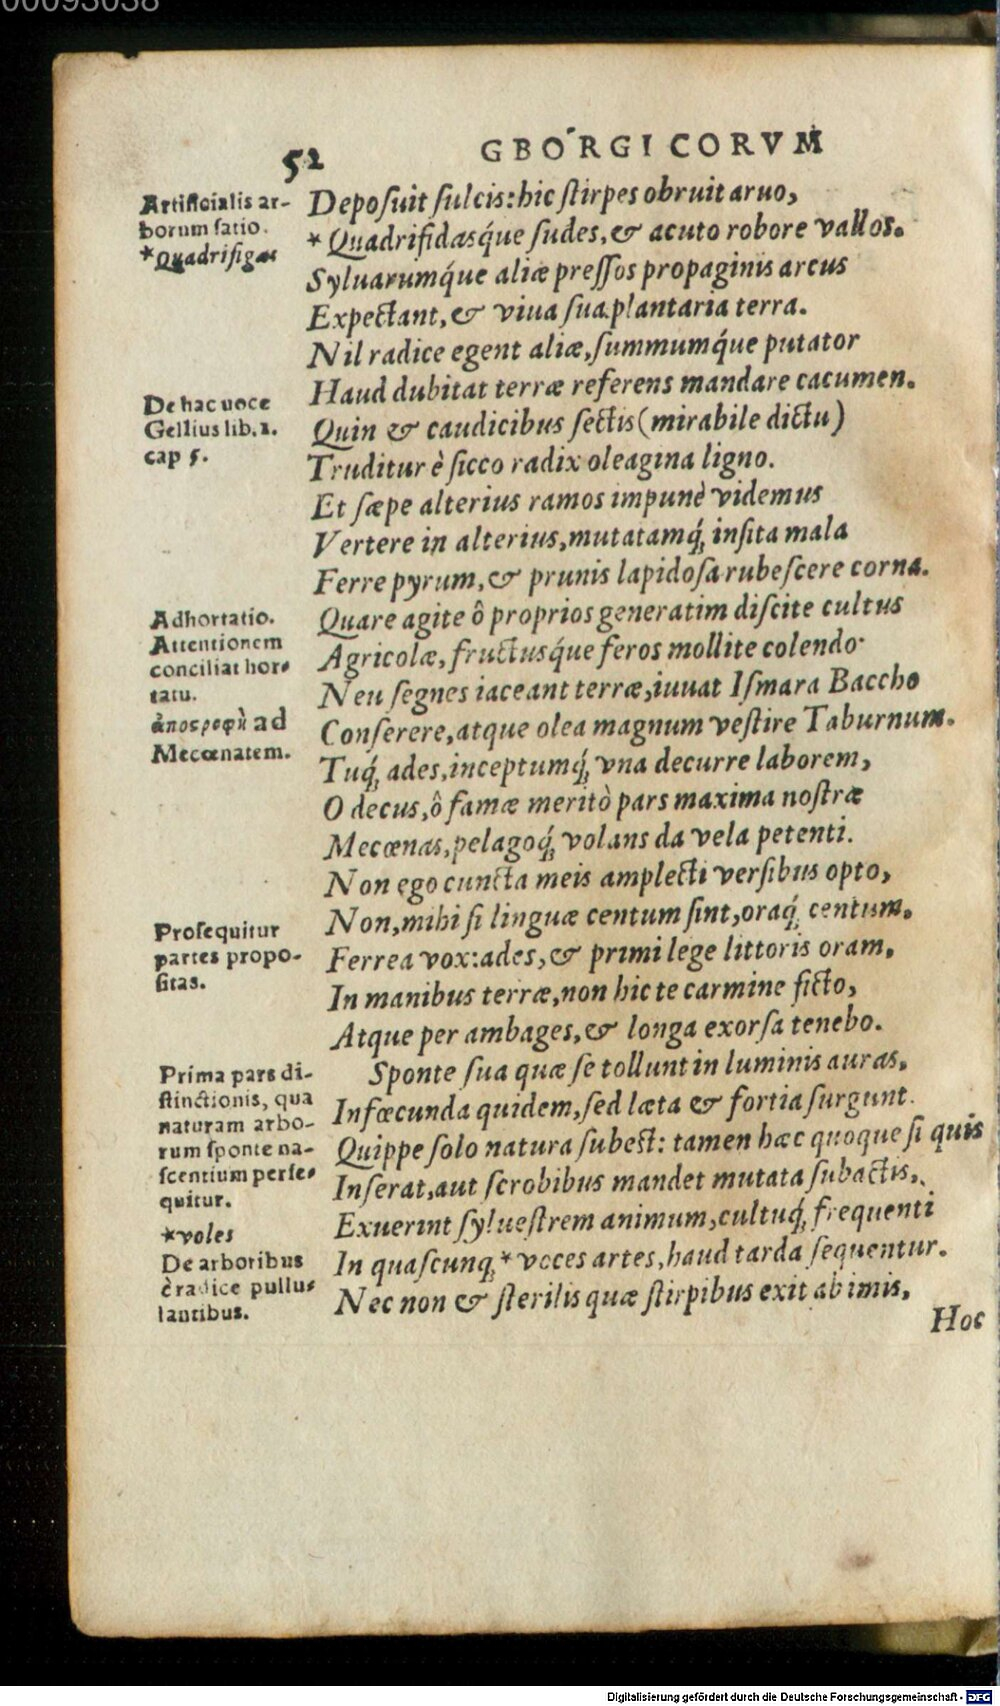 00093038
52 GBORGICORVM
Artificialis ar-
borum satio.
*Quadrifigas
Deposuit sulcis: hic stirpes obruit aruo,
*Quadrifidasq́ue sudes, & acuto robore vallos.
Syluarumq́ue aliæ pressos propaginis arcus
Expectant, & viua sua plantaria terra.
Nil radice egent aliæ, summumq́ue putator
Haud dubitat terræ referens mandare cacumen.
De hac uoce
Gellius lib. 2.
cap 5.
Quin & caudicibus sectis (mirabile dictu)
Truditur è sicco radix oleagina ligno.
Et sæpe alterius ramos impunè videmus
Vertere in alterius, mutatamq́; insita mala
Ferre pyrum, & prunis lapidosa rubescere corna.
Adhortatio.
Attentionem
conciliat hor-
tatu.
ad
Mecœnatem.
Quare agite ô proprios generatim discite cultus
Agricolæ, fructusq́ue feros mollite colendo.
Neu segnes iaceant terræ, iuuat Ismara Baccho
Conserere, atque olea magnum vestire Taburnum.
Tuq́; ades, inceptumq́; vna decurre laborem,
O decus, ô famæ meritò pars maxima nostræ
Mecœnas, pelagoq́; volans da vela petenti.
Non ego cuncta meis amplecti versibus opto,
Non, mihi si linguæ centum sint, oraq́; centum,
Prosequitur
partes propo-
sitas.
Ferrea vox: ades, & primi lege littoris oram,
In manibus terræ, non hic te carmine ficto,
Atque per ambages, & longa exorsa tenebo.
Prima pars di-
stinctionis, qua
naturam arbo-
rum sponte na-
scentium perse-
quitur.
*voles
De arboribus
è radice pullu-
lantibus.
Sponte sua quæ se tollunt in luminis auras,
Infœcunda quidem, sed læta & fortia surgunt.
Quippe solo natura subest: tamen hæc quoque si quis
Inserat, aut scrobibus mandet mutata subactis,
Exuerint syluestrem animum, cultuq́; frequenti
In quascunq; *voces artes, haud tarda sequentur.
Nec non & sterilis quæ stirpibus exit ab imis,
Hoc
Digitalisierung gefördert durch die Deutsche Forschungsgemeinschaft - DFG